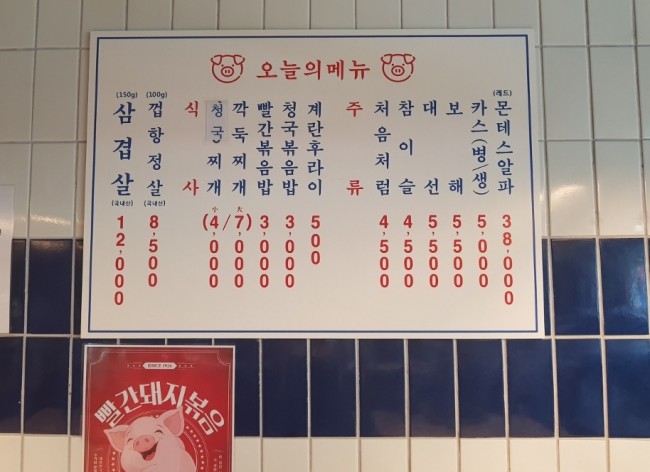 오늘의메뉴
(150g)
삼겹살
(국내산)
12,000
(100g)
껍항정살
(국내산)
8,500
식사
청국찌개
깍둑찌개
小 大
(4,000/7,000)
빨간볶음밥
3,000
청국볶음밥
3,000
계란후라이
500
주류
처음처럼
4,500
참이슬
4,500
대선
5,500
보해
5,500
카스(병/생)
5,000
(레드)
몬테스알파
38,000
SINCE
빨간돼지볶음